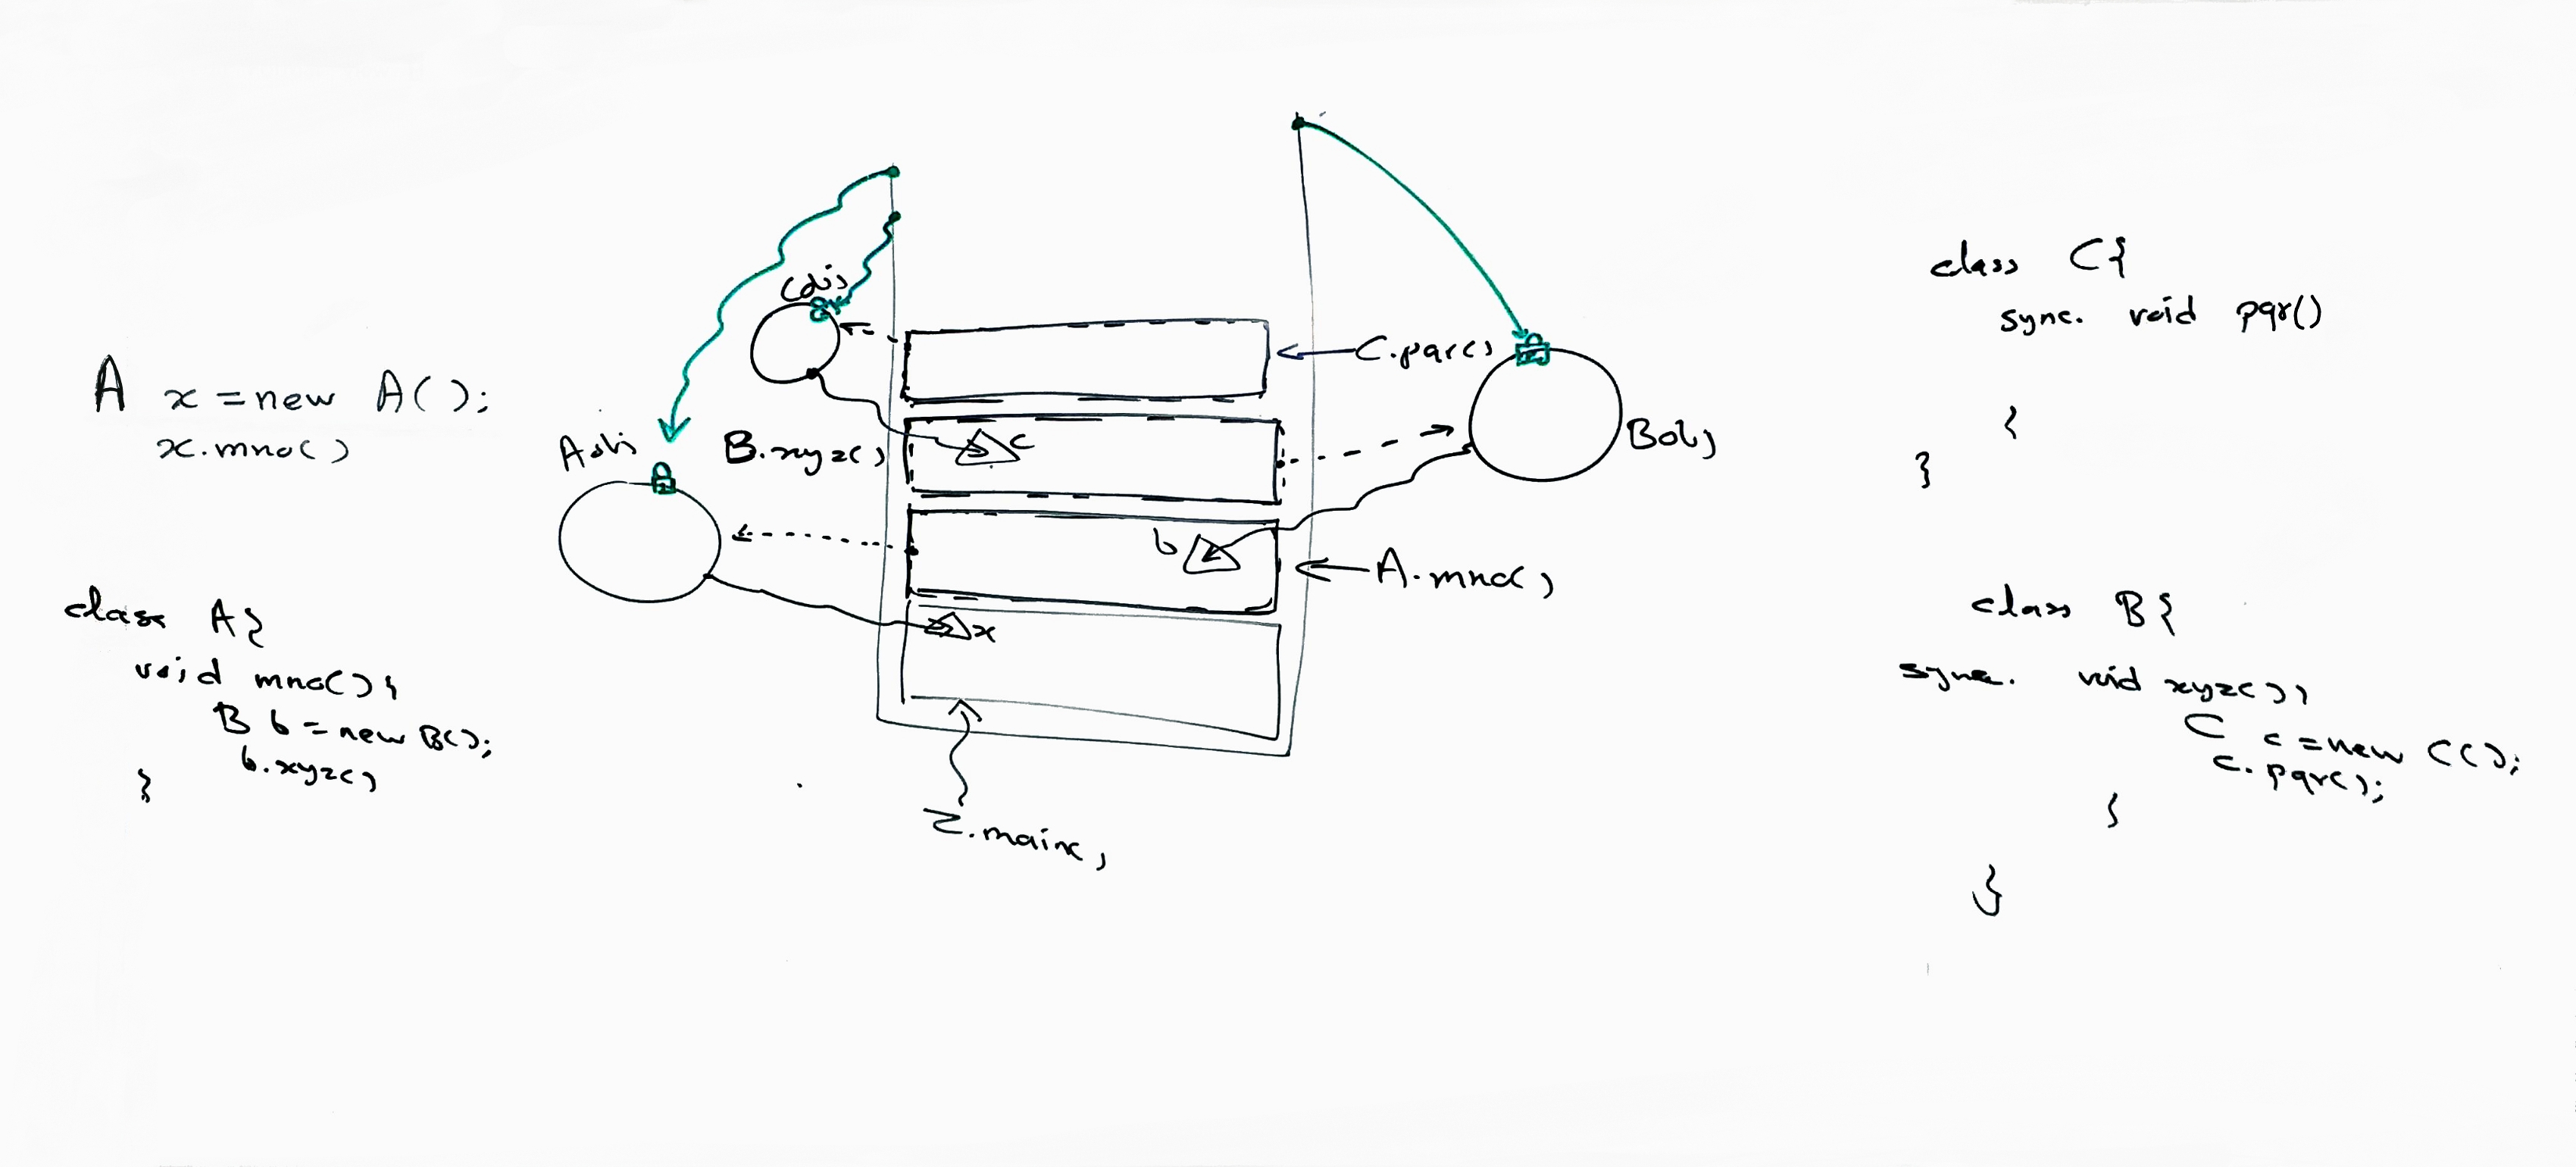 A x = new A();
x.mno()
class A{
void mno(){
B b = new B();
b.xyz()
}
Cobj
Aobj
B.xyz()
c
C.pqr()
Bobj
b
A.mno()
x
Z.main()
class C{
sync. void pqr()
{
}
class B{
sync. void xyz(){
C c = new C();
c.pqr();
}
}